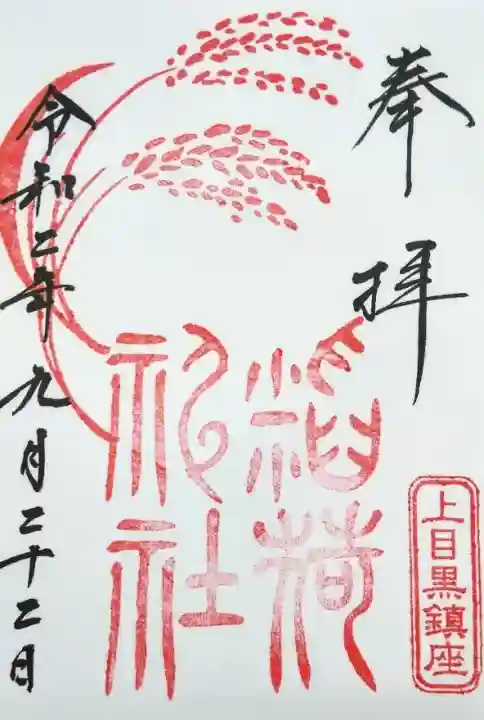 奉拝
稲荷
神社
上目黒鎮座
令和二年九月二十二日